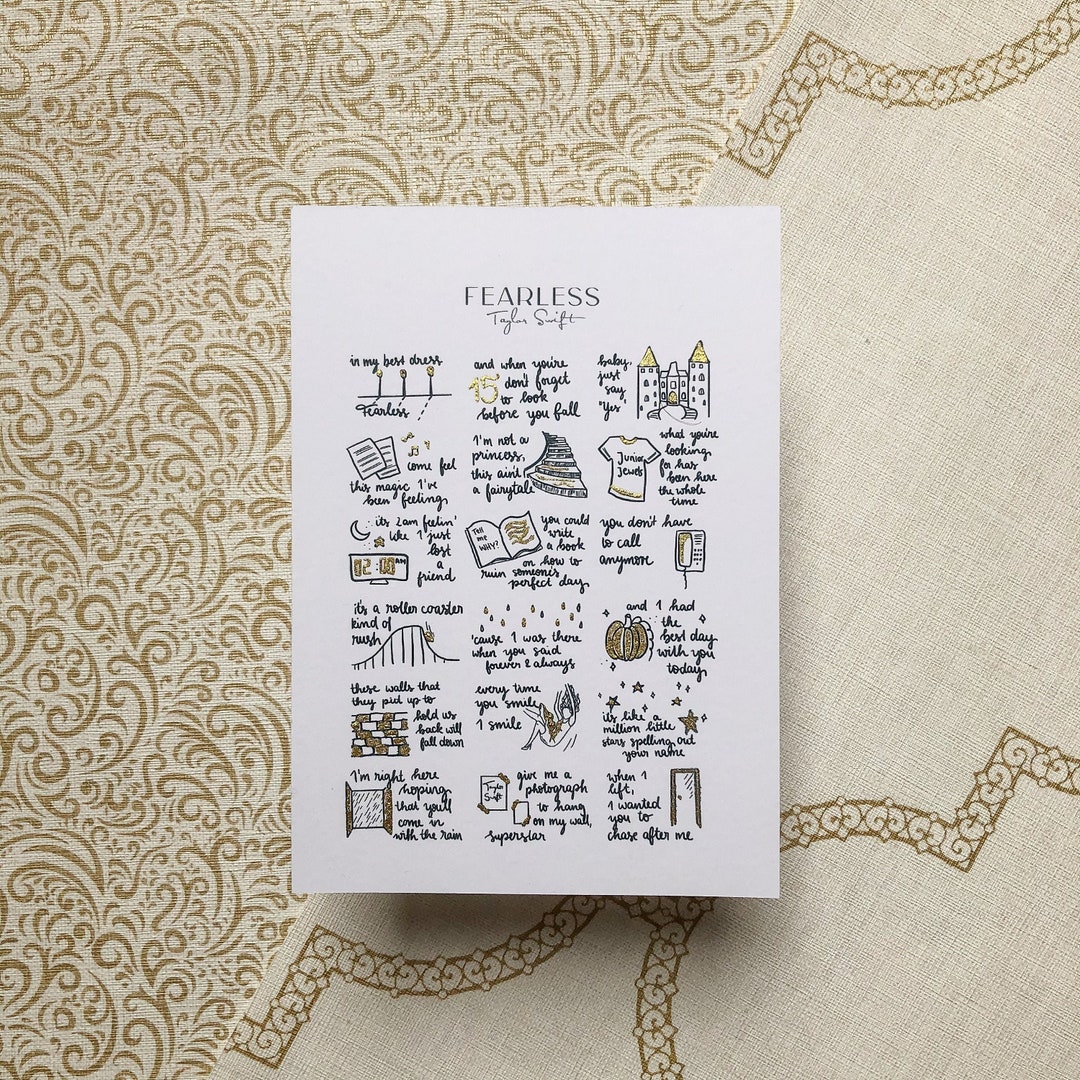 FEARLESS
Taylor Swift
in my best dress
Fearless
and when you're
15 don't forget
to look
before you fall
baby,
just
say
'Yes'
come feel
this magic I've
been feeling
I'm not a
princess,
this ain't
a fairytale
Junior
Jewels
what you're
looking
for has
been here
the whole
time
its 2am feelin'
like I just
lost
a
friend
02:00 AM
Tell
me
WHY?
you could
write
a book
on how to
ruin someone's
perfect day
you don't have
to call
anymore
it's a roller coaster
kind of
rush
'cause I was there
when you said
forever & always
and I had
the
best day
with you
today
these walls that
they put up to
hold us
back will
fall down
every time
you smile
I smile
its like a
million little
stars spelling out
your name
I'm right here
hoping
that you'll
come in
with the rain
Taylor
Swift
give me a
photograph
to hang
on my wall,
superstar
when I
left,
I wanted
you to
chase after me